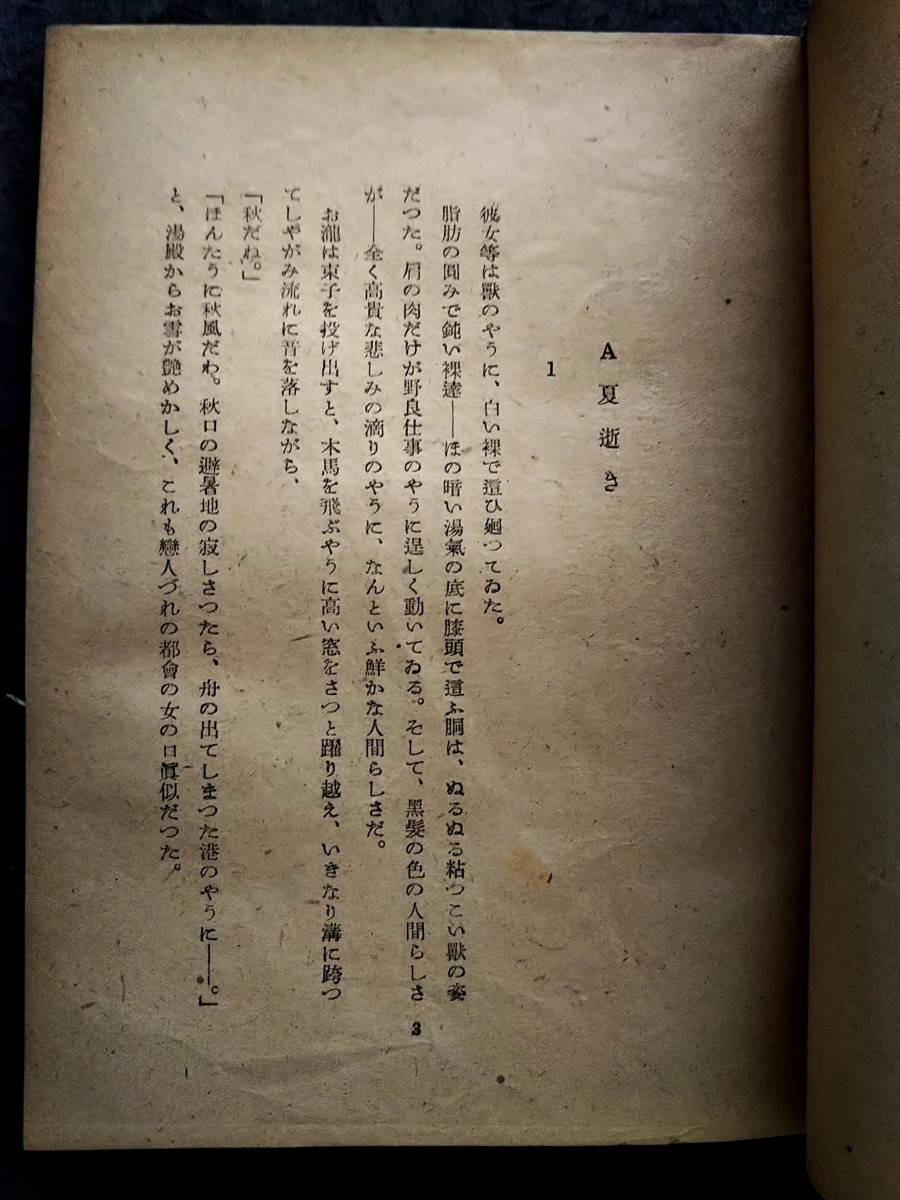 A 夏逝き
1
彼女等は獸のやうに、白い裸で這ひ廻つてゐた。
脂肪の圓みで鈍い裸達――ほの暗い湯氣の底に膝頭で這ふ胴は、ぬるぬる粘つこい獸の姿
だつた。肩の肉だけが野良仕事のやうに逞しく動いてゐる。そして、黑髮の色の人間らしさ
が――全く高貴な悲しみの滴りのやうに、なんといふ鮮かな人間らしさだ。
お瀧は束子を投げ出すと、木馬を飛ぶやうに高い窓をさつと躍り越え、いきなり溝に跨つ
てしやがみ流れに音を落しながら、
「秋だね。」
「ほんたうに秋風だわ。秋口の避暑地の寂しさつたら、舟の出てしまつた港のやうに――。」
と、湯殿からお雪が艷めかしく、これも戀人づれの都會の女の口眞似だつた。
3